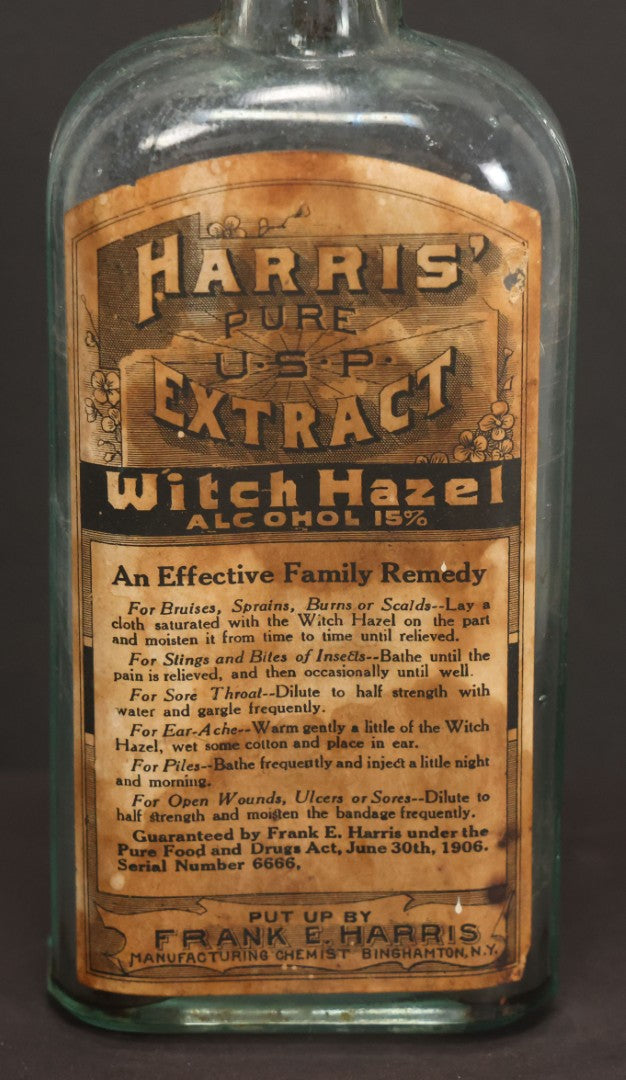 HARRIS'
PURE
U·S·P·
EXTRACT
Witch Hazel
ALCOHOL 15%
An Effective Family Remedy
For Bruises, Sprains, Burns or Scalds--Lay a
cloth saturated with the Witch Hazel on the part
and moisten it from time to time until relieved.
For Stings and Bites of Insects--Bathe until the
pain is relieved, and then occasionally until well.
For Sore Throat--Dilute to half strength with
water and gargle frequently.
For Ear-Ache--Warm gently a little of the Witch
Hazel, wet some cotton and place in ear.
For Piles--Bathe frequently and inject a little night
and morning.
For Open Wounds, Ulcers or Sores--Dilute to
half strength and moisten the bandage frequently.
Guaranteed by Frank E. Harris under the
Pure Food and Drugs Act, June 30th, 1906.
Serial Number 6666.
PUT UP BY
FRANK E. HARRIS
MANUFACTURING CHEMIST BINGHAMTON, N.Y.